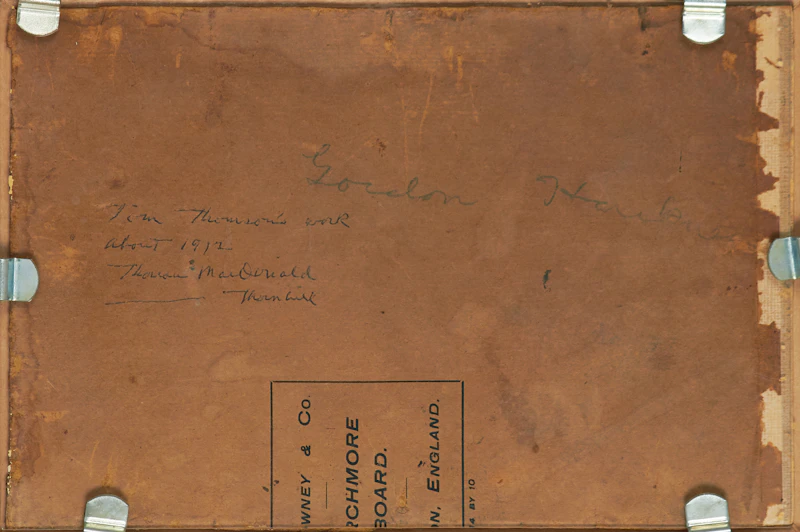 Gordon
Tom Thomson's work
about 1912
Thoreau MacDonald
Thornhill
WNEY & Co.
RCHMORE
BOARD.
ON, ENGLAND.
BY 10